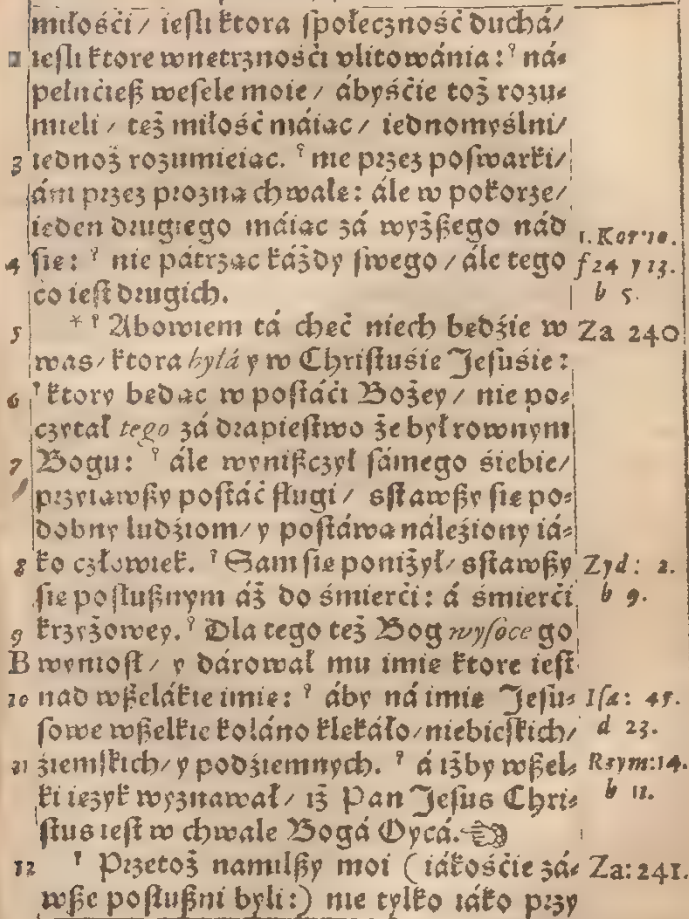 miłośći / iesli ktora społeczność duchá /
iesli ktore wnetrznośći vlitowánia : ná⸗
pełnćiesz wesele moie / ábyśćie toż rozu⸗
mieli / też miłość máiac / iednomyślni /
3 iednoż rozumieiac. nie przez poswarki /
áni przez prozna chwałe : ále w pokorze /
ieden drugiego máiac zá wyższego nád
4 sie : nie pátrząc káżdy swego / ále tego
co iest drugich.
1. Kor: 10.
f 24 y 13.
b 5.
5 * Abowiem tá cheć niech bedźie w
was / ktora byłá y w Christuśie Jesuśie :
Za 240
6 ktory bedac w postáći Bożey / nie po⸗
czytał tego zá drapiestwo że był rownym
7 Bogu : ále wyniszczył sámego śiebie /
przyiawszy postáć sługi / sstawszy sie po⸗
dobny ludźiom / y postáwa náleźiony iá⸗
8 ko człowiek. Sam sie poniżył / sstawszy
sie posłusznym áż do śmierći : á śmierći
Zyd: 2.
b 9.
9 krzyżowey. Dla tego też Bog wysoce go
B wyniosł / y dárował mu imie ktore iest
10 nad wszelákie imie : áby ná imie Jesu⸗
sowe wszelkie koláno klekáło / niebieskich /
Isa: 45.
d 23.
11 źiemskich / y podźiemnych. á iżby wszel⸗
ki iezyk wyznawał / iż Pan Jesus Chri⸗
stus iest w chwale Bogá Oycá. ☜
Rzym: 14.
b 11.
12 Przetoż namilszy moi ( iákośćie zá⸗
wsze posłuszni byli : ) nie tylko iáko przy
Za: 241.